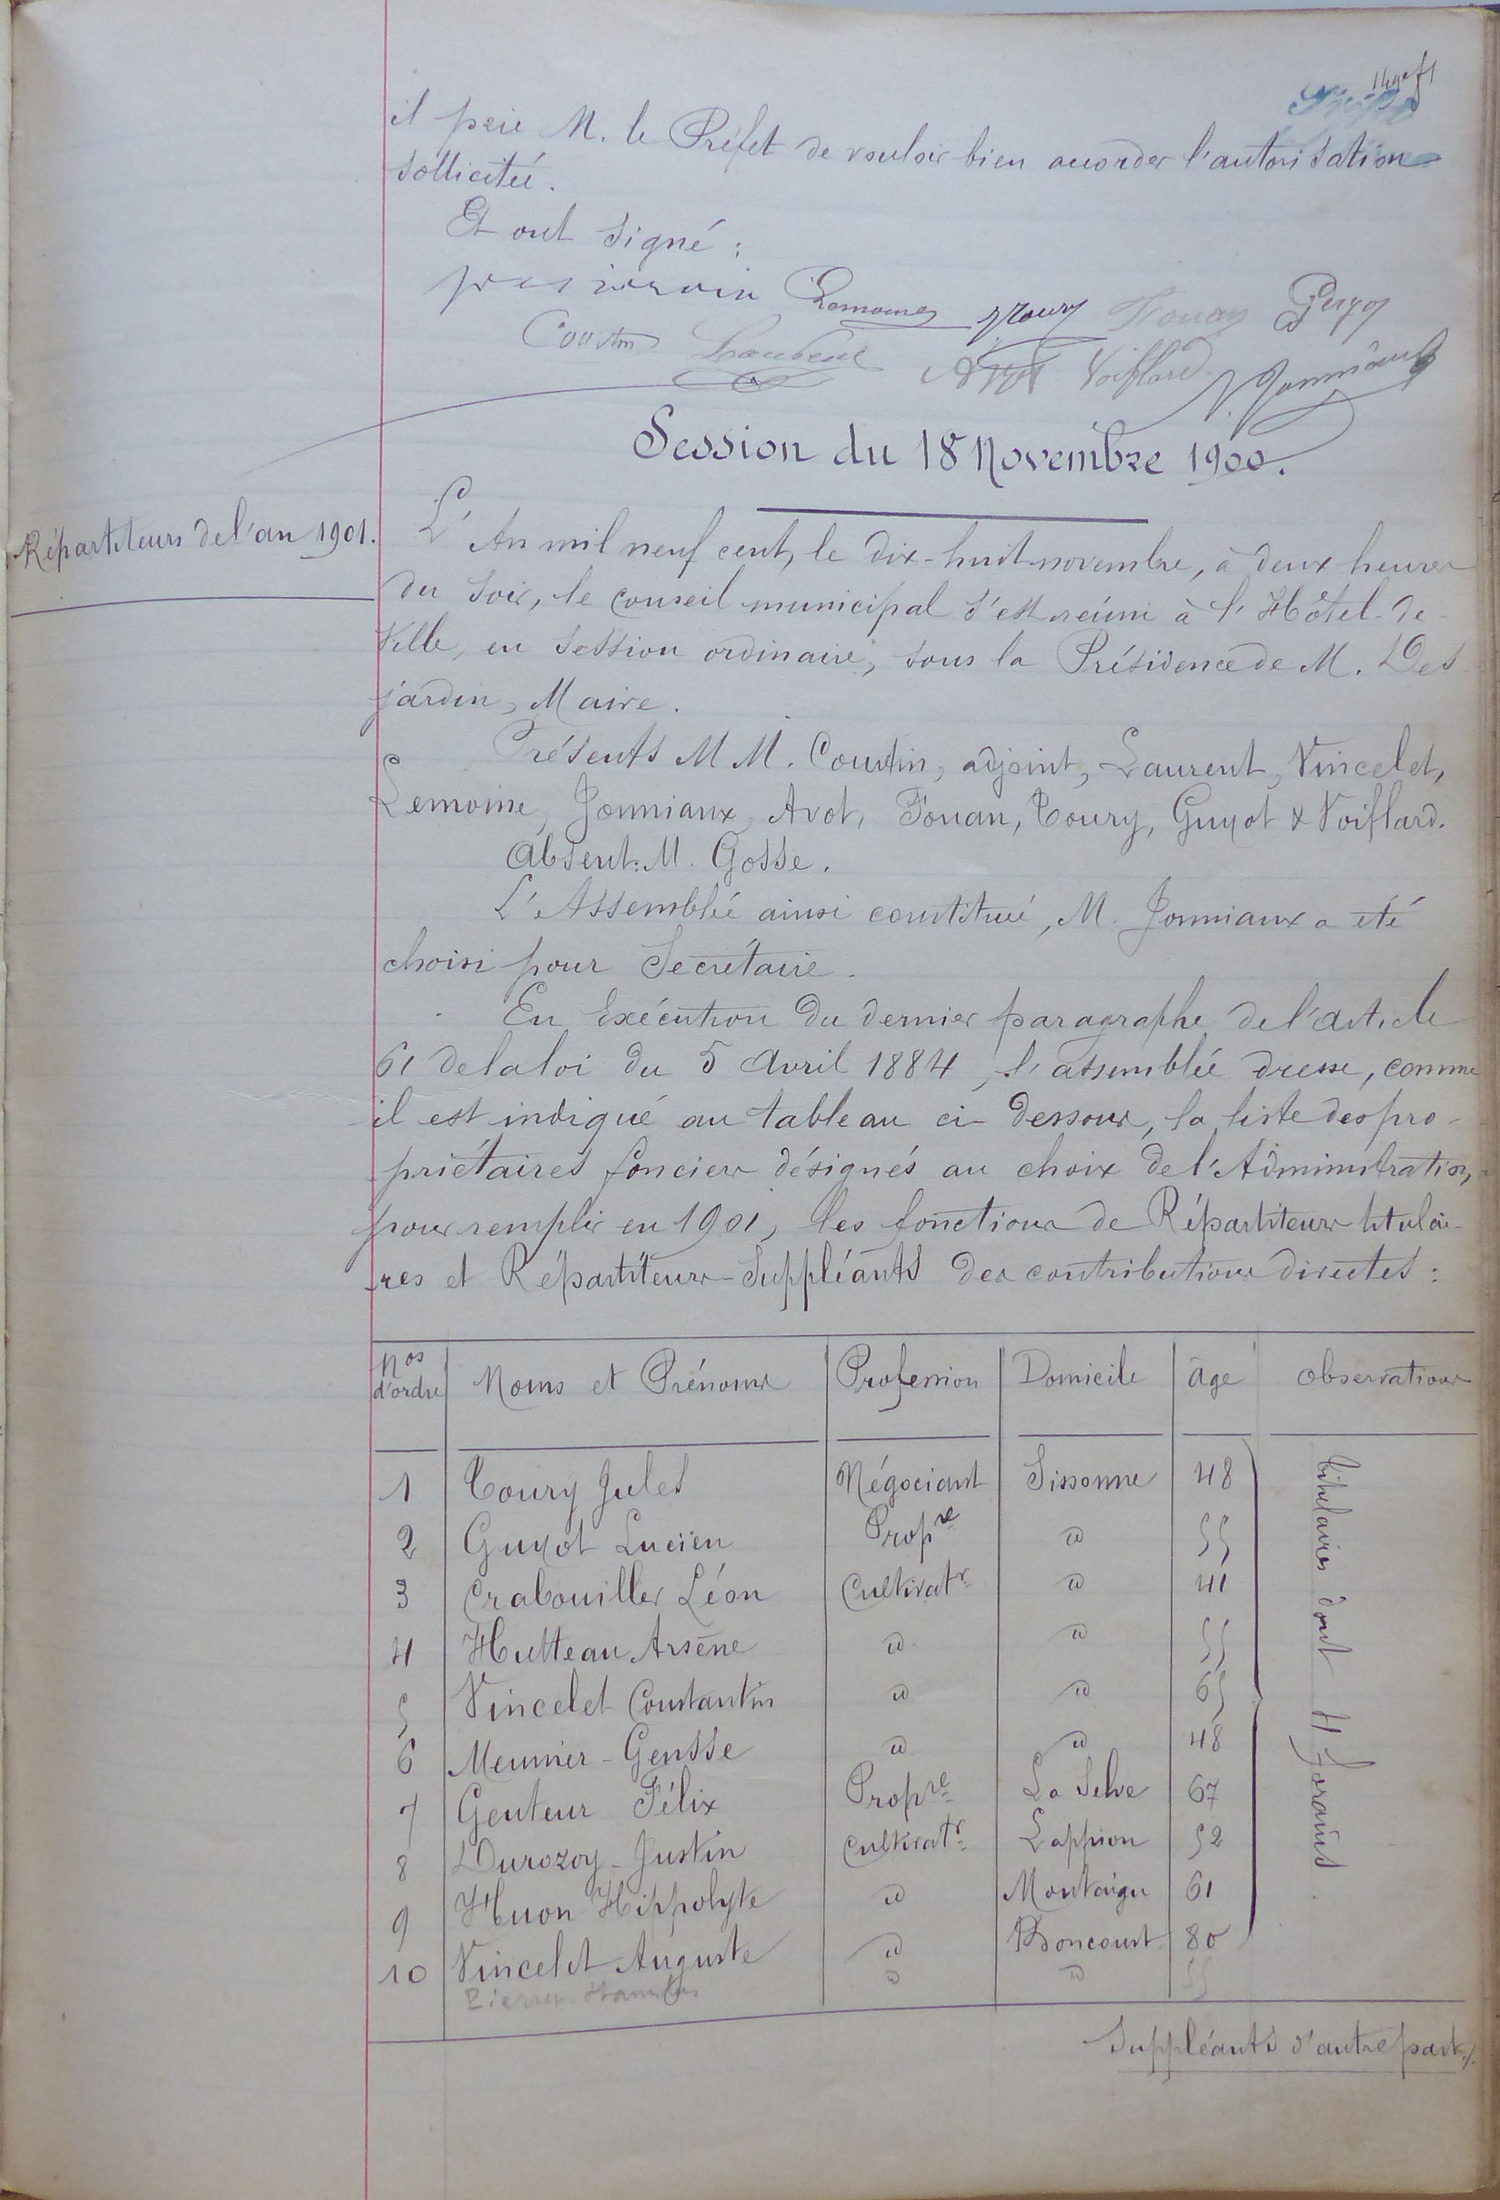 il prie M. le Préfet de vouloir bien accorder l'autorisation
sollicitée.
Et ont signé :
Lemoine Toury Fouan Guyot
Courtin Laurent Avot Voiflard Jonniaux
Session du 18 Novembre 1900.
Répartiteurs de l'an 1901.
L'An mil neuf cent, le dix-huit novembre, à deux heures
du soir, le conseil municipal s'est réuni à l'Hôtel-de-
Ville, en session ordinaire, sous la Présidence de M. Des
jardin, Maire.
Présents MM. Courtin, adjoint, Laurent, Vincelet,
Lemoine, Jonniaux, Avot, Fouan, Toury, Guyot & Voiflard.
Absent: M. Gosse.
L'Assemblée ainsi constituée, M. Jonniaux a été
choisi pour Secrétaire.
En exécution du dernier paragraphe de l'article
61 de la loi du 5 Avril 1884, l'assemblée dresse, comme
il est indiqué au tableau ci-dessous, la liste des pro-
priétaires fonciers désignés au choix de l'Administration,
pour remplir en 1901, les fonctions de Répartiteurs titulai-
res et Répartiteurs-Suppléants des contributions directes :
Nos d'ordre Noms et Prénoms Profession Domicile âge Observations
1 Toury Jules Négociant Sissonne 48
2 Guyot Lucien Propre " 55
3 Crabouiller Léon Cultivatr " 41
4 Hutteau Arsène " " 55
5 Vincelet Constantin " " 65
6 Meunier-Gensse " " 48
7 Genteur Félix Propre La Selve 67
8 Durozoy-Justin Cultivatr Lappion 52
9 Huon Hippolyte " Montaigu 61
10 Vincelet Auguste " Boncourt 80
" " 55
titulaires dont 4 forains
Suppléants d'autre part ./.